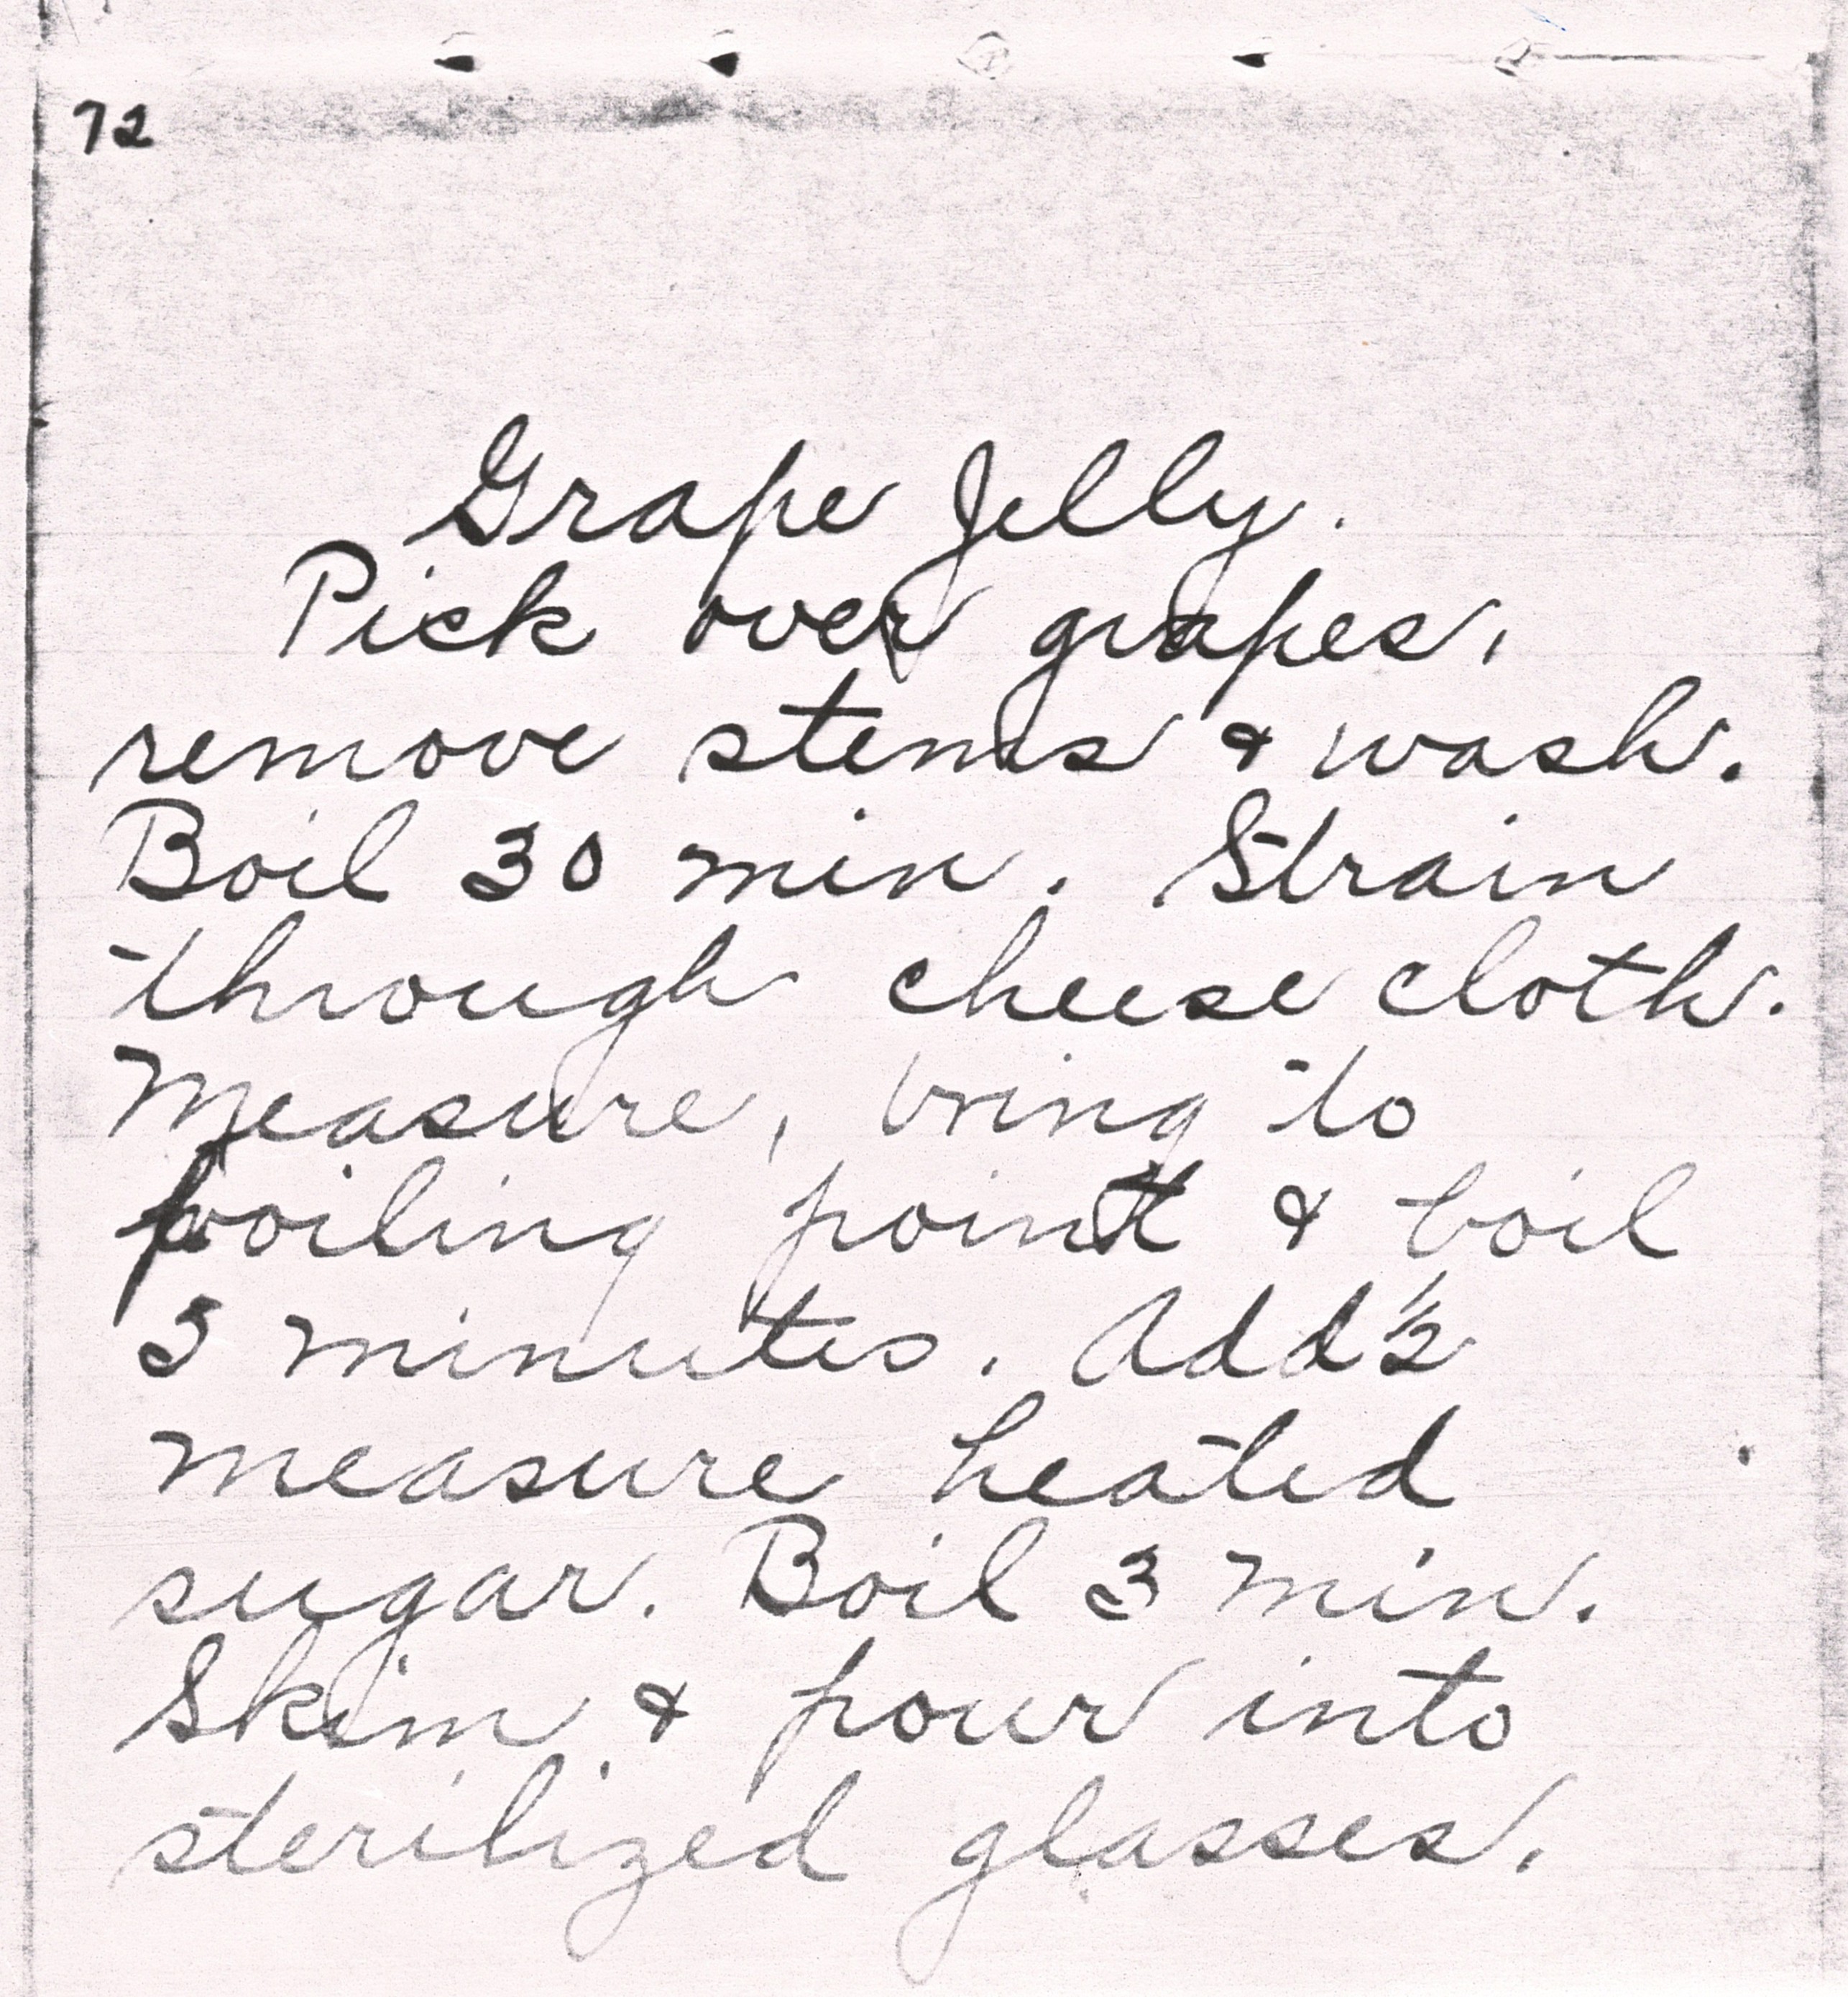 72
Grape Jelly.
Pick over grapes,
remove stems & wash.
Boil 30 min. Strain
through cheese cloth.
Measure, bring to
boiling point & boil
5 minutes. Add ½
measure heated
sugar. Boil 3 min.
Skim & pour into
sterilized glasses.